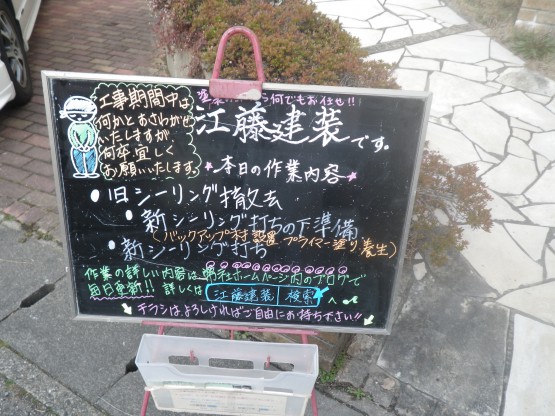 工事期間中は
何かとおさわがせ
いたしますが
何卒宜しく
お願いいたします。
何でもお任せ!!
江藤建装です。
★本日の作業内容★
●旧シーリング撤去
●新シーリング打ちの下準備
(バックアップ材設置 プライマー塗り 養生)
●新シーリング打ち
作業の詳しい内容は、弊社ホームページ内のブログで
毎日更新!! 詳しくは 江藤建装 検索 へ
チラシはよろしければご自由にお持ち下さい!!